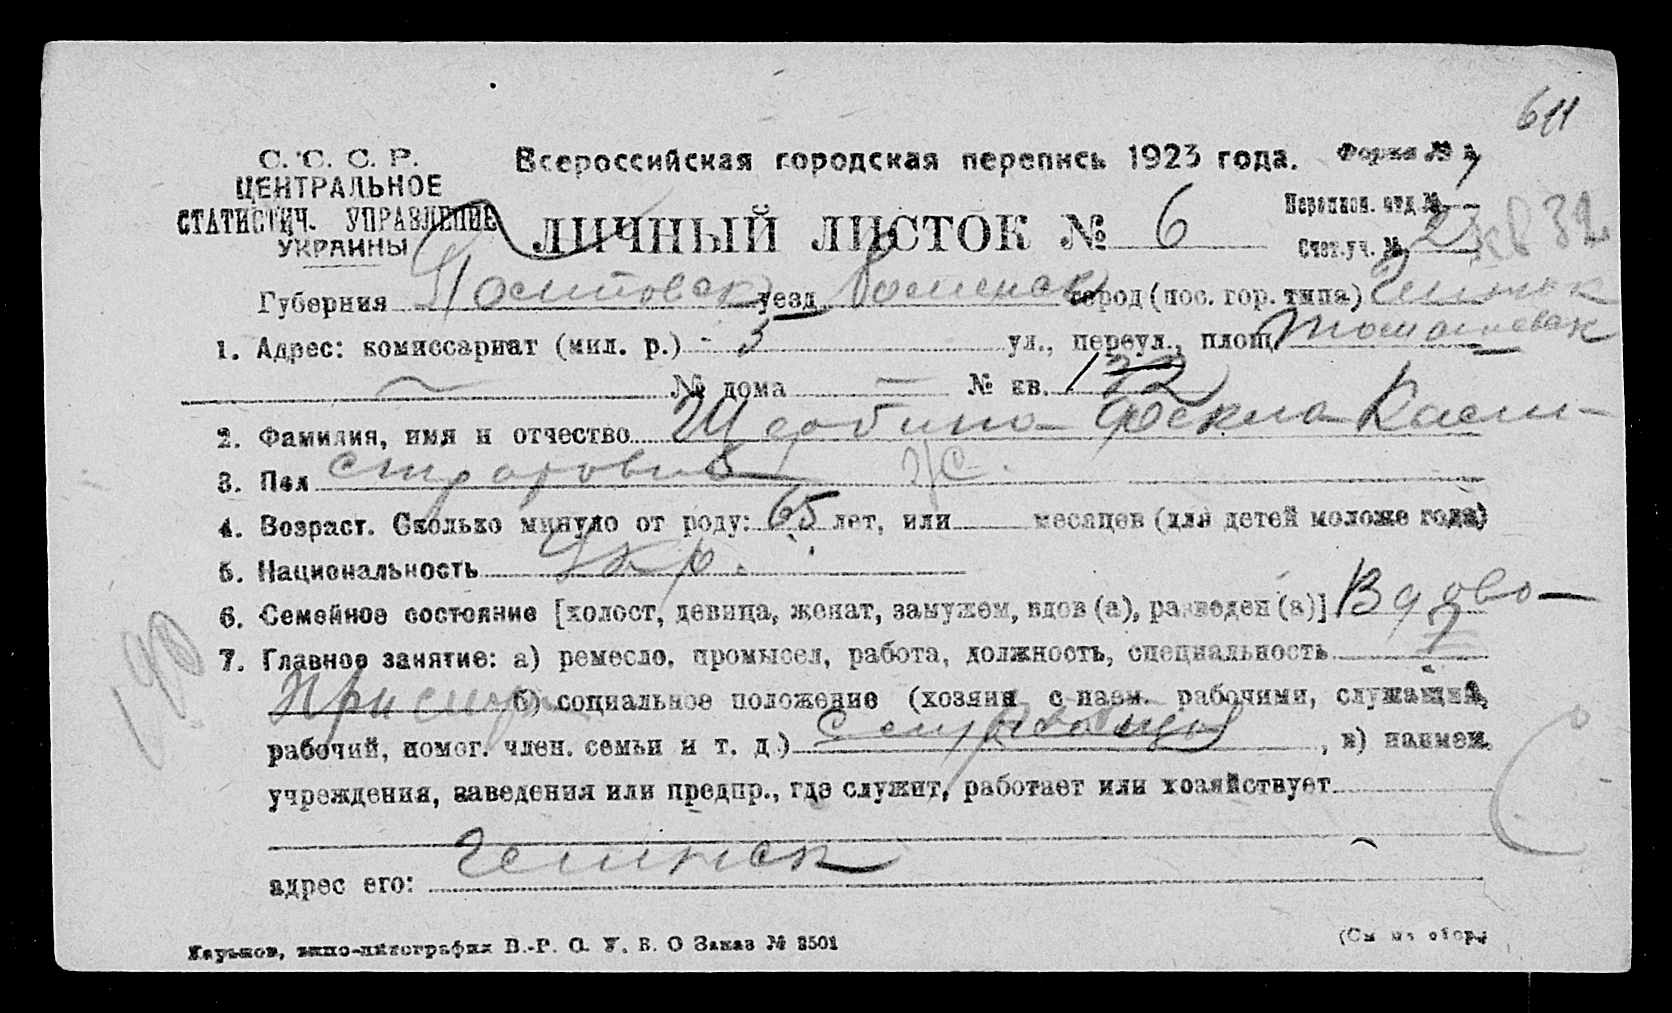 611
С. С. С. Р.
ЦЕНТРАЛЬНОЕ
СТАТИСТИЧ. УПРАВЛЕНИЕ
УКРАИНЫ
Всероссийская городская перепись 1923 года. Форма №
ЛИЧНЫЙ ЛИСТОК № 6
Переписн. отд №
Счет.уч. № 2 кв 32
Губерния Полтовск уезд Роменск город (пос. гор. типа)
1. Адрес: комиссариат (мил. р.) - 3 ул., переул., площ.
№ дома — № кв. 132
2. Фамилия, имя и отчество Щербина Фекла Кали-
3. Пол стратовна ж.
4. Возраст. Сколько минуло от роду: 65 лет, или месяцев (для детей моложе года)
5. Национальность Укр.
6. Семейное состояние [холост, девица, женат, замужем, вдов (а), разведен (а)] Вдова
7. Главное занятие: а) ремесло, промысел, работа, должность, специальность
б) социальное положение (хозяин с наем. рабочими, служащий,
рабочий, помог. член. семьи и т. д.) , в) наимен.
учреждения, заведения или предпр., где служит, работает или хозяйствует
адрес его:
190
Харьков, типо-литография В.-Р. О. У. В. О Заказ № 3501
(См на обор.)